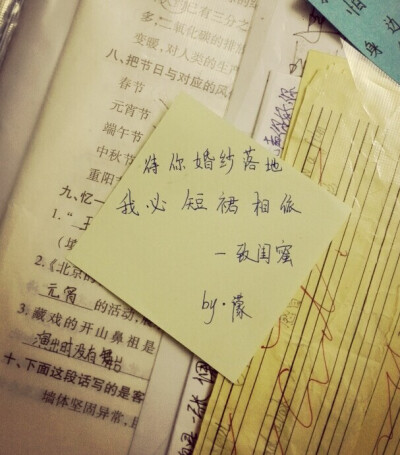 已有三分之
多,二氧化碳的排放
变暖,对人类的生产
八、把节日与对应的风
春节
元宵节
端午节
中秋节
重阳
九、忆一
1.“王
2.《北京的
元宵 的活动,
3.藏戏的开山鼻祖是
演出时没有舞台
十、下面这段话写的是客
墙体坚固异常,
待你婚纱落地
我必短裙相依
一致闺蜜
by·濛
边
身